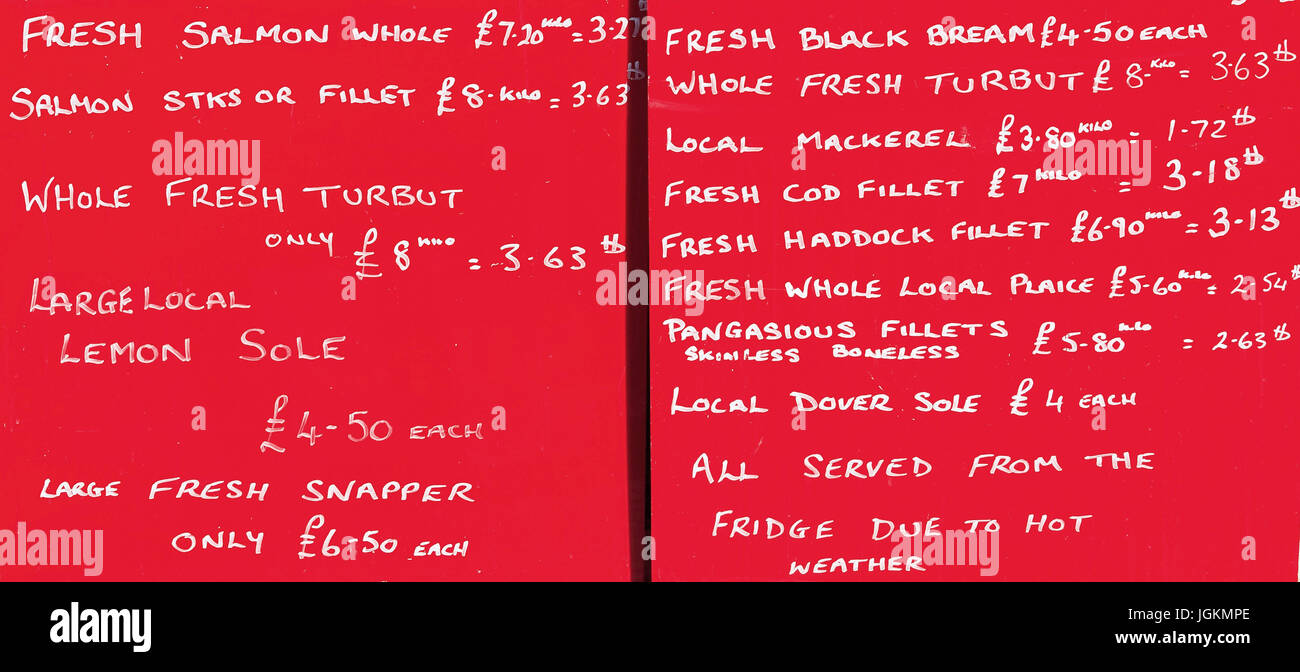 FRESH SALMON WHOLE £7.20 KILO = 3.27
SALMON STKS OR FILLET £8. KILO = 3.63 lb
WHOLE FRESH TURBUT
ONLY £8 KILO = 3.63 lb
LARGE LOCAL
LEMON SOLE
£4-50 EACH
LARGE FRESH SNAPPER
ONLY £6-50 EACH
FRESH BLACK BREAM £4-50 EACH
WHOLE FRESH TURBUT £8. KILO = 3.63 lb
LOCAL MACKEREL £3.80 KILO = 1.72 lb
FRESH COD FILLET £7 KILO = 3.18 lb
FRESH HADDOCK FILLET £6-90 KILO = 3.13 lb
FRESH WHOLE LOCAL PLAICE £5-60 KILO = 2.54 lb
PANGASIOUS FILLETS £5-80 KILO = 2.63 lb
SKINLESS BONELESS
LOCAL DOVER SOLE £4 EACH
ALL SERVED FROM THE
FRIDGE DUE TO HOT
WEATHER
alamy
a
alamy stock photo
Image ID: JGKMPE
www.alamy.com